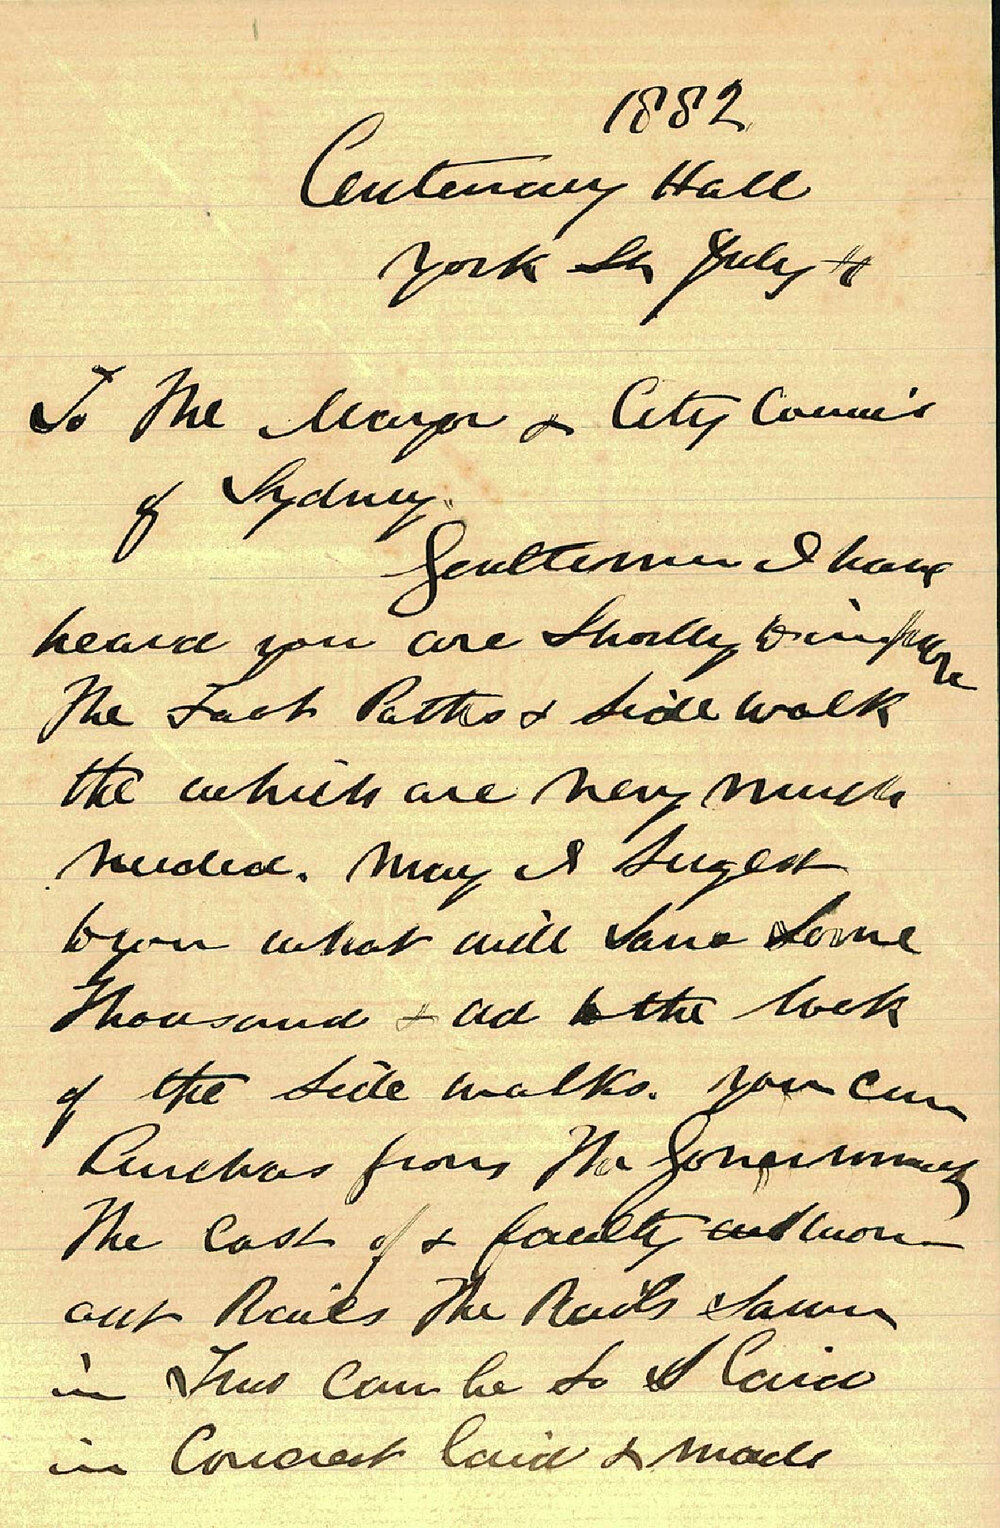 1882
Centenary Hall
York St July 4
To The Mayor & City Councis
of Sydney.
Gentlemen I have
heard you are Shortly to improve
The Foot Paths & Side walk
the which are very much
needed. May I Sugest
to you what will Save Some
Thousand & ad to the look
of the Side walks. You can
Purchas from The Government
The Cast of & faulty and worn
out Rails The Rails Sawn
in Two Can be So Laid
in Concreat laid & made